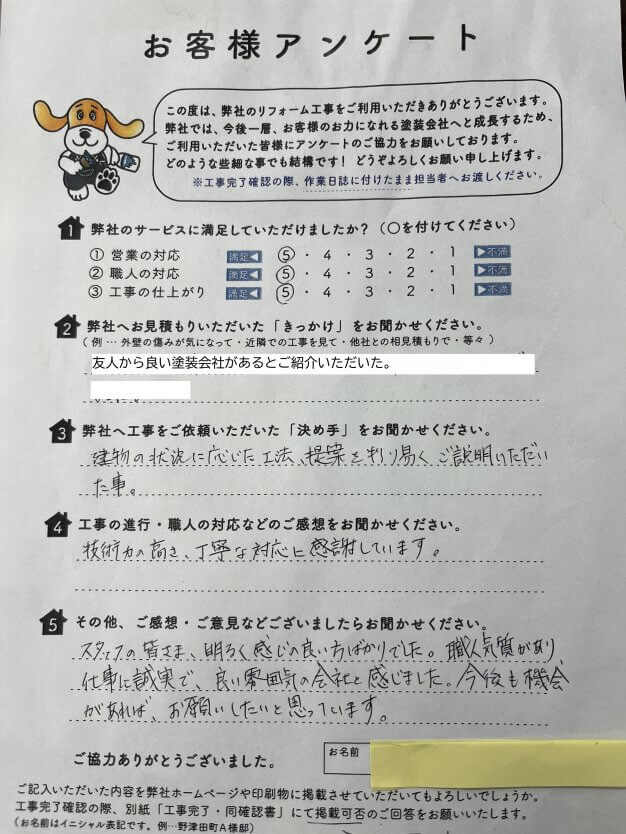 お客様アンケート
この度は、弊社のリフォーム工事をご利用いただきありがとうございます。
弊社では、今後一層、お客様のお力になれる塗装会社へと成長するため、
ご利用いただいた皆様にアンケートのご協力をお願いしております。
どのような些細な事でも結構です！どうぞよろしくお願い申し上げます。
※工事完了確認の際、作業日誌に付けたまま担当者へお渡しください。
1 弊社のサービスに満足していただけましたか？（〇を付けてください）
① 営業の対応 満足◀ 5・4・3・2・1 ▶不満
② 職人の対応 満足◀ 5・4・3・2・1 ▶不満
③ 工事の仕上がり 満足◀ 5・4・3・2・1 ▶不満
2 弊社へお見積もりいただいた「きっかけ」をお聞かせください。
（例…外壁の傷みが気になって・近隣での工事を見て・他社との相見積もりで・等々）
友人から良い塗装会社があるとご紹介いただいた。
3 弊社へ工事をご依頼いただいた「決め手」をお聞かせください。
建物の状況に応じた工法、提案を判り易くご説明いただい
た事。
4 工事の進行・職人の対応などのご感想をお聞かせください。
技術力の高さ、丁寧な対応に感謝しています。
5 その他、ご感想・ご意見などございましたらお聞かせください。
スタッフの皆さま、明るく感じの良い方ばかりでした。職人気質があり、
仕事に誠実で、良い雰囲気の会社と感じました。今後も機会
があれば、お願いしたいと思っています。
ご協力ありがとうございました。
お名前
ご記入いただいた内容を弊社ホームページや印刷物に掲載させていただいてもよろしいでしょうか。
工事完了確認の際、別紙「工事完了・同確認書」にて掲載可否のご回答をお願いいたします。
（お名前はイニシャル表記です。例…野津田町A様邸）